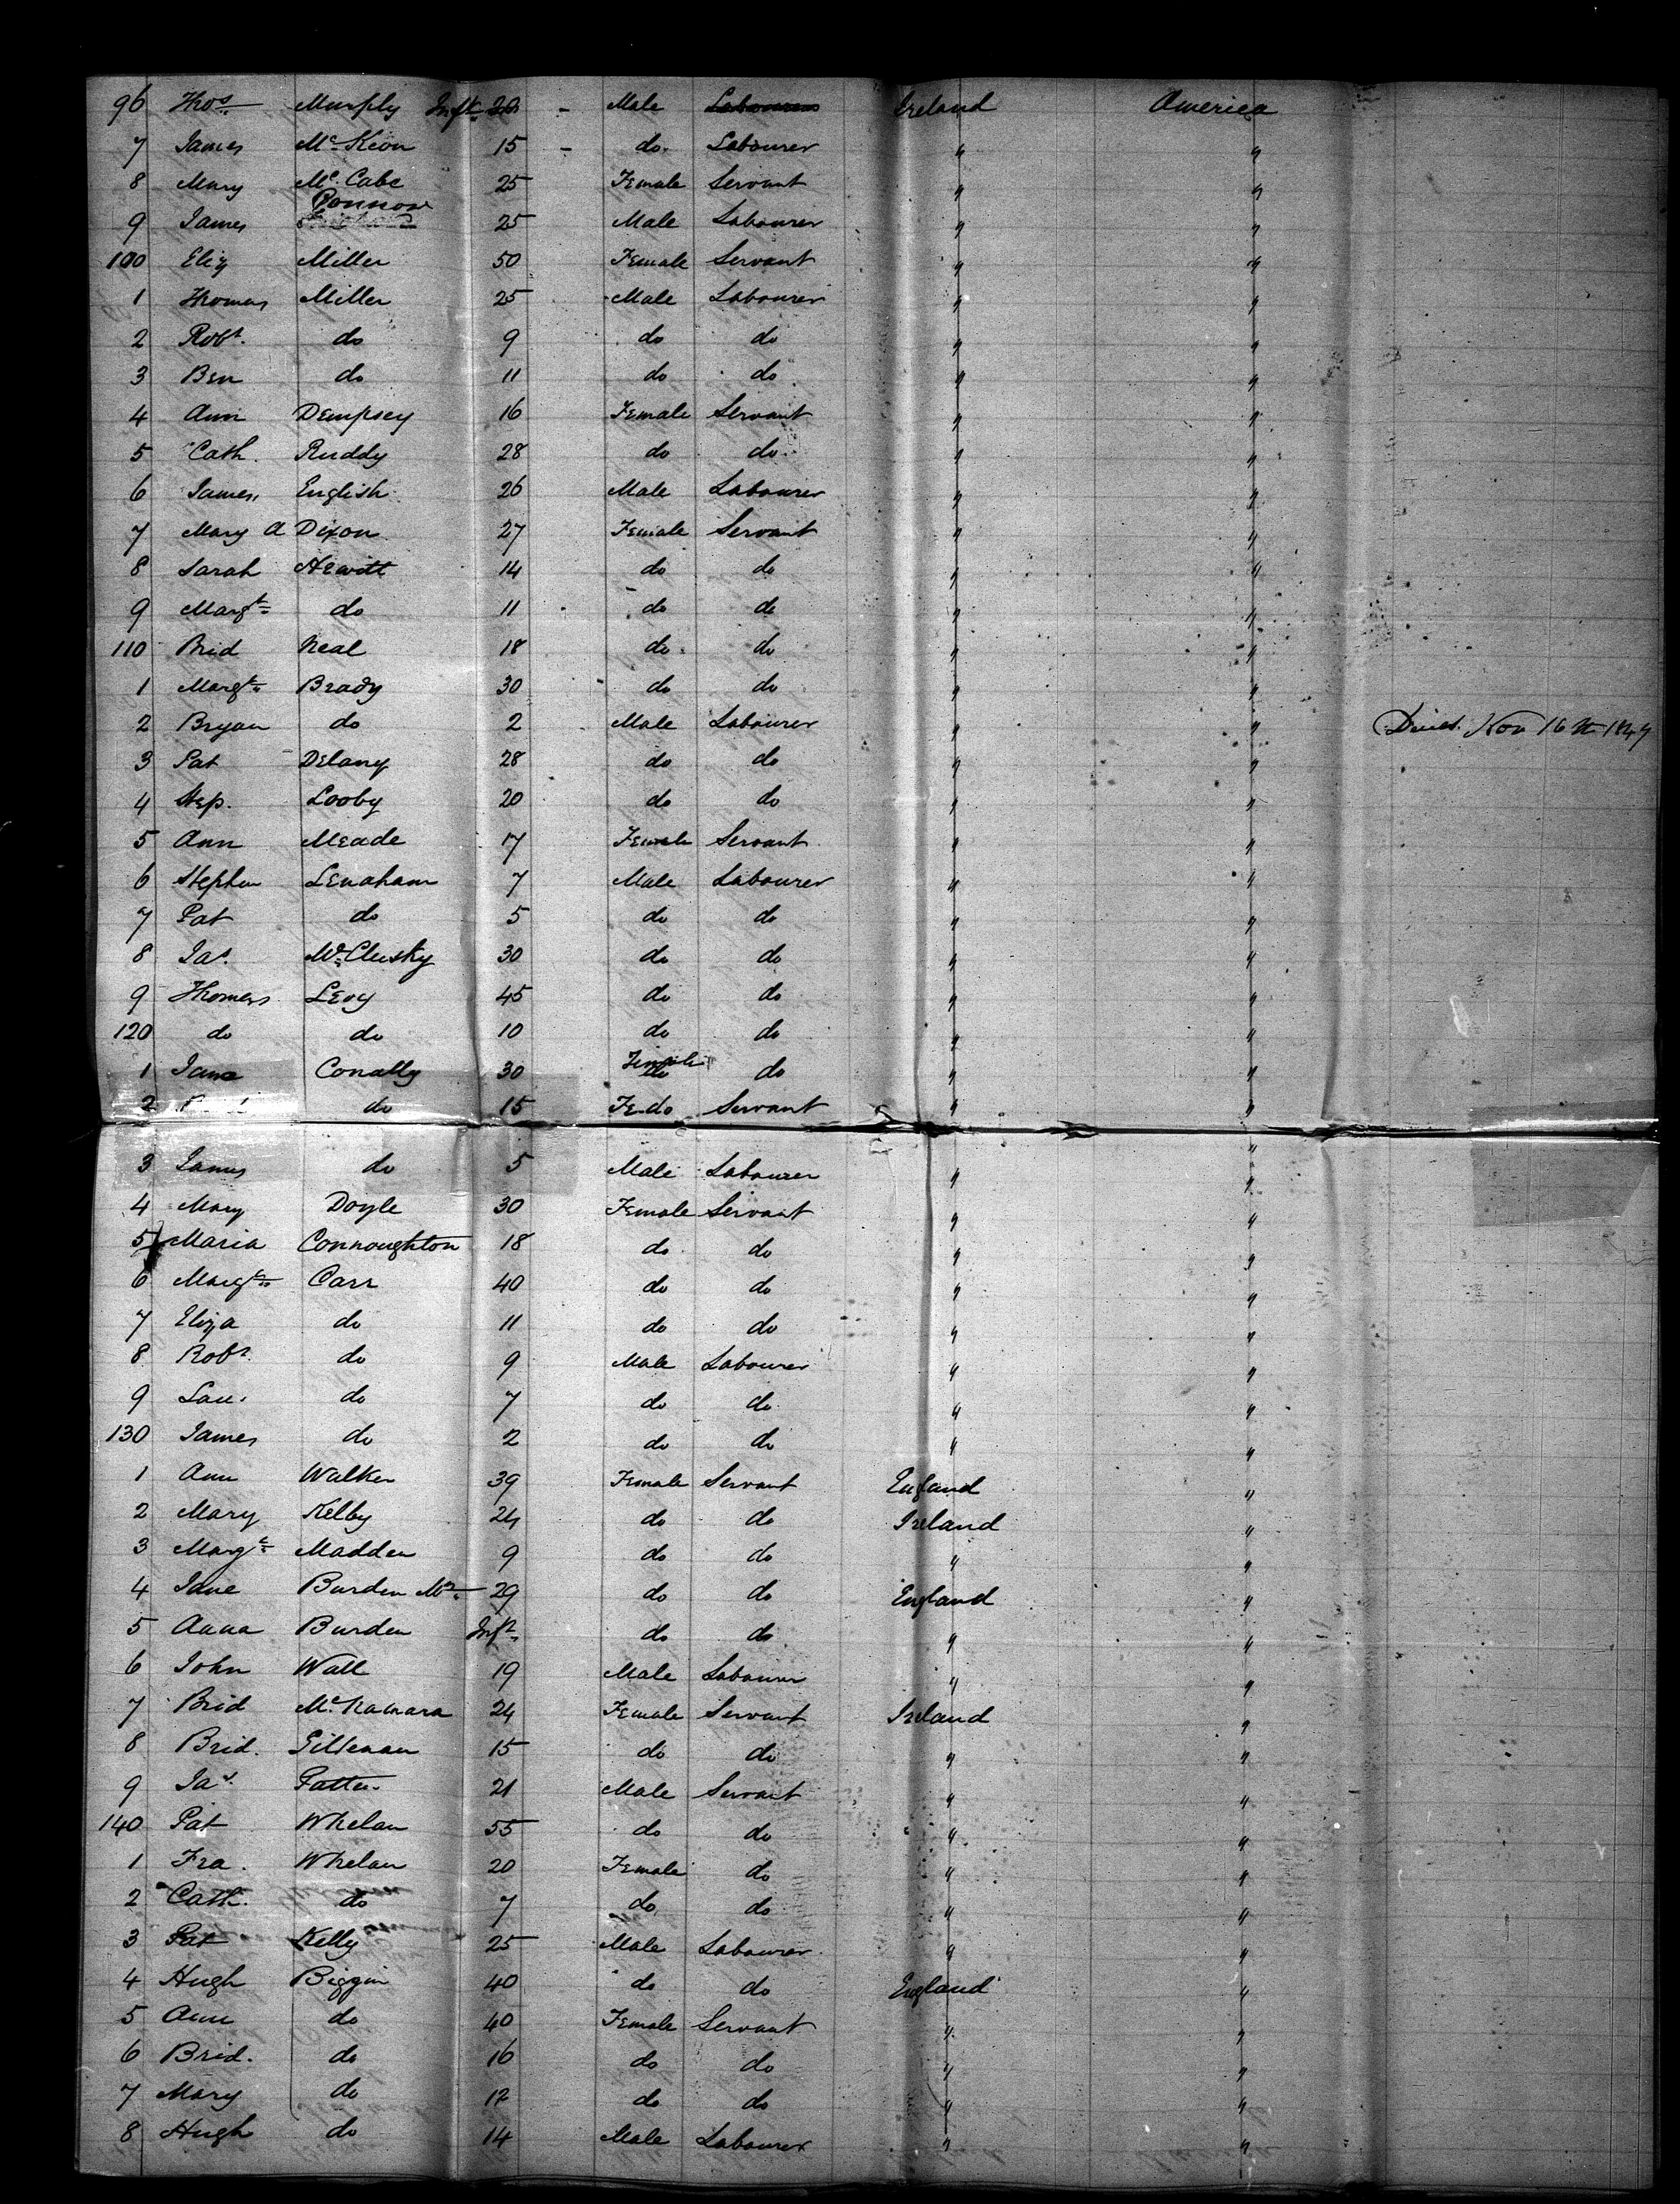 96 Thos Murphy Inft 20 - Male Labourer Ireland America
7 James McKeon 15 - do. Labourer " "
8 Mary McCabe 25 Female Servant " "
9 James Connor 25 Male Labourer " "
100 Eliz Miller 50 Female Servant " "
1 Thomas Miller 25 Male Labourer " "
2 Robt. do 9 do do " "
3 Ben do 11 do do " "
4 Ann Dempsey 16 Female Servant " "
5 Cath. Ruddy 28 do do " "
6 James English 26 Male Labourer " "
7 Mary A Dixon 27 Female Servant " "
8 Sarah Hewitt 14 do do " "
9 Margt do 11 do do " "
110 Brid Neal 18 do do " "
1 Margt Brady 30 do do " "
2 Bryan do 2 Male Labourer " " Died. Nov 16th 1847
3 Pat Delany 28 do do " "
4 Step. Looby 20 do do " "
5 Ann Meade 17 Female Servant " "
6 Stephen Lenaham 7 Male Labourer " "
7 Pat do 5 do do " "
8 Jas. McClusky 30 do do " "
9 Thomas Levy 45 do do " "
120 do do 10 do do " "
1 Jane Conally 30 Female do " "
2 do 15 Fe do Servant " "
3 James do 5 Male Labourer " "
4 Mary Doyle 30 Female Servant " "
5 Maria Connoughton 18 do do " "
6 Margt Carr 40 do do " "
7 Eliza do 11 do do " "
8 Robt. do 9 Male Labourer " "
9 Lau. do 7 do do " "
130 James do 2 do do " "
1 Ann Walker 39 Female Servant England "
2 Mary Kelby 24 do do Ireland "
3 Margt Madden 9 do do " "
4 Jane Burden Mrs 29 do do England "
5 Anna Burden Inft do do " "
6 John Wall 19 Male Labourer " "
7 Brid McNamara 24 Female Servant Ireland "
8 Brid. Giltenan 15 do do " "
9 Jas. Patten 21 Male Servant " "
140 Pat Whelan 55 do do " "
1 Fra. Whelan 20 Female do " "
2 Cath. do 7 do do " "
3 Pat Kelly 25 Male Labourer " "
4 Hugh Biggin 40 do do England "
5 Ann do 40 Female Servant " "
6 Brid. do 16 do do " "
7 Mary do 12 do do " "
8 Hugh do 14 Male Labourer " "